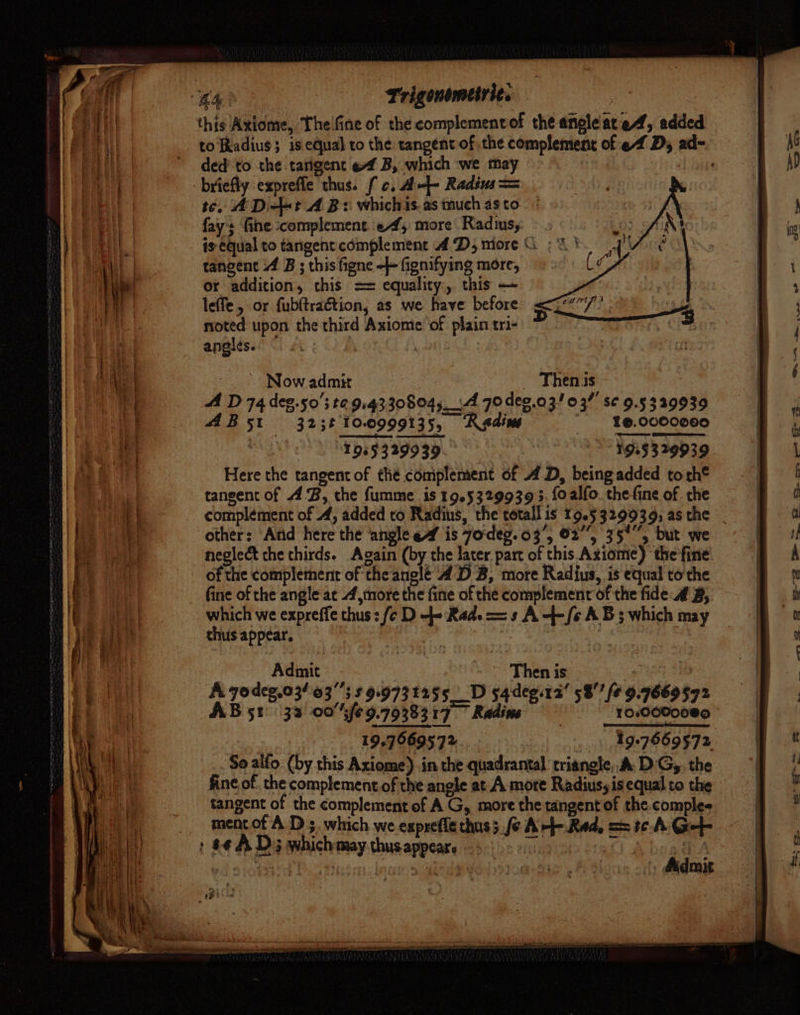 44 Trigonometrie.
this Axiome, The ſine of the complement of the angle at A, added
to Radius; is equal to the tangent of the complement of A D, ad-
ded to the tangent A B, which we may
briefly expreſſe thus. ſ c. A + Radius =
tc. A D + t A B: which is as much as to
ſay; ſine complement A, more Radius,
is equal to tangent complement A D, more
tangent A B; this ſigne + ſignifying more,
or addition, this == equality, this —
leſſe, or ſubſtraction, as we have before
noted upon the third Axiome of plain tri-
angles.
Now admit Then is
A D 74 deg. 50'; tc 9.4330804, A 70 deg. 03' 03'' sc 9.5329939
A B 51 32; t 10.0999135, Radius 10.0000000
19.5329939 19.5329939
Here the tangent of the complement of A D, being added to the
tangent of A B, the ſumme is 19.5329939; ſo alſo the ſine of the
complement of A, added to Radius, the totall is 19.5329939, as the
other: And here the angle A is 70 deg. 03', 02'', 35''', but we
neglect the thirds. Again (by the later part of this Axiome) the ſine
of the complement of the angle A D B, more Radius, is equal to the
ſine of the angle at A, more the ſine of the complement of the ſide A B,
which we expreſſe thus: ſc D + Rad. = s A + ſc A B; which may
thus appear.
Admit Then is
A 70 deg. 03' 03''; s 9.9731255 D 54 deg. 12' 58'' ſc 9.7669572
A B 51 32 00'' ſc 9.7938317 Radius 10.0000000
19.7669572 19.7669572
So alſo (by this Axiome) in the quadrantal triangle, A D G, the
ſine of the complement of the angle at A more Radius, is equal to the
tangent of the complement of A G, more the tangent of the comple-
ment of A D; which we expreſſe thus; ſc A + Rad. = tc A G +
tc A D; which may thus appear.
Admit